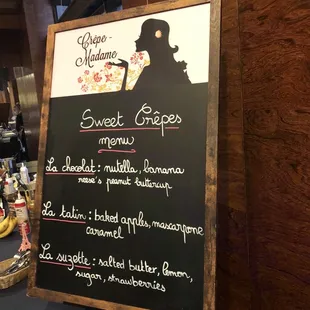 Crêpe -
Madame
Sweet Crêpes
menu
La chocolat : nutella, banana
reese's peanut buttercup
La tatin : baked apples, mascarpone
caramel
La suzette : salted butter, lemon,
sugar, strawberries